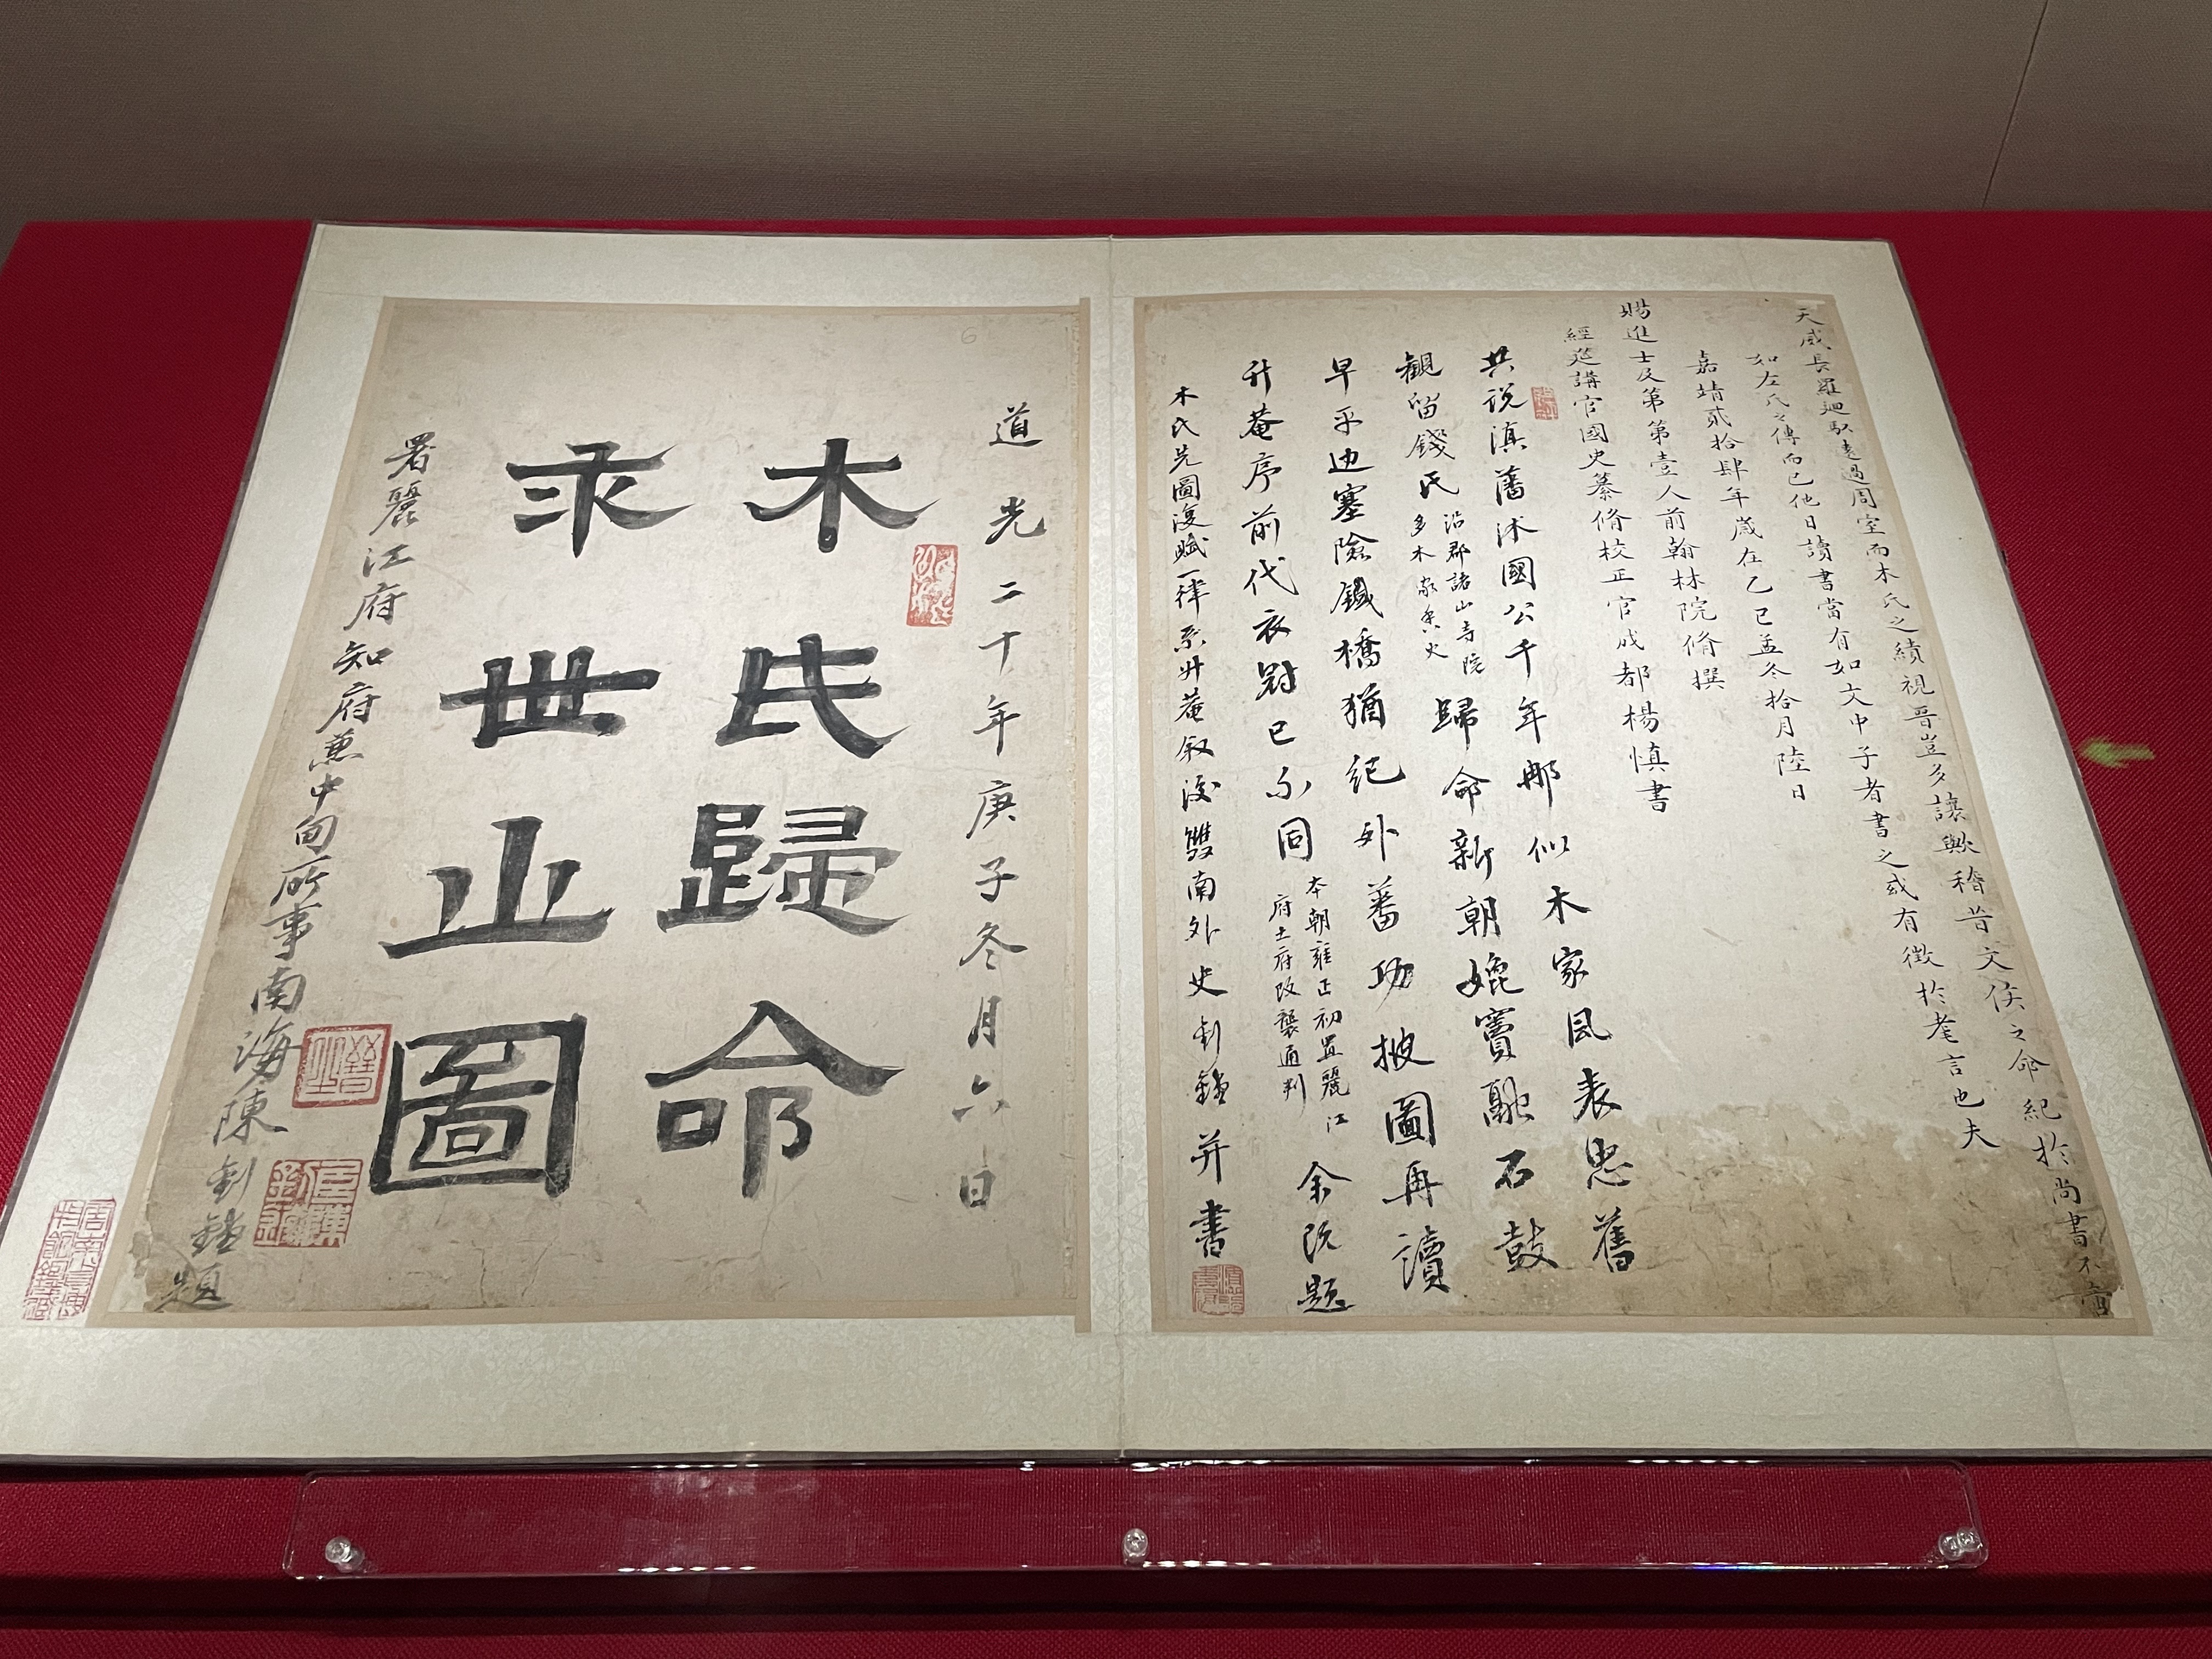 天威長羅迴馭遠過周室而木氏之績視晉豈多讓歟稽昔文侯之命紀於尚書不啻
如左氏之傳而已他日讀書當有如文中子者書之或有徵於耄言也夫
嘉靖貳拾肆年歲在乙巳孟冬拾月陸日
賜進士及第第壹人前翰林院脩撰
經筵講官國史纂脩校正官成都楊慎書
共説滇藩沭國公千年那似木家風表忠舊
觀留錢氏
沿郡諸山寺院
多木家香火
歸命新朝媲竇融石鼓
早平边塞險鐡橋猶紀外蕃功披圖再讀
升菴序前代衣冠已不同
本朝雍正初置麗江
府土府改襲通判
余既題
木氏先圖復賦一律系升菴叙後雙南外史釗鏜并書
道光二十年庚子冬月六日
木氏歸命
求世之圖
署麗江府知府兼中甸所事南海陳釗鏜題